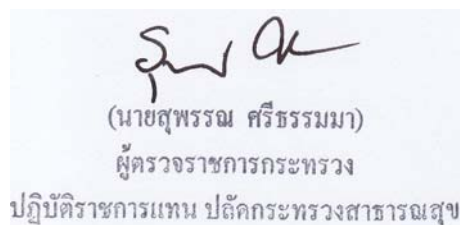 (นายสุพรรณ ศรีธรรมมา)
ผู้ตรวจราชการกระทรวง
ปฏิบัติราชการแทน ปลัดกระทรวงสาธารณสุข